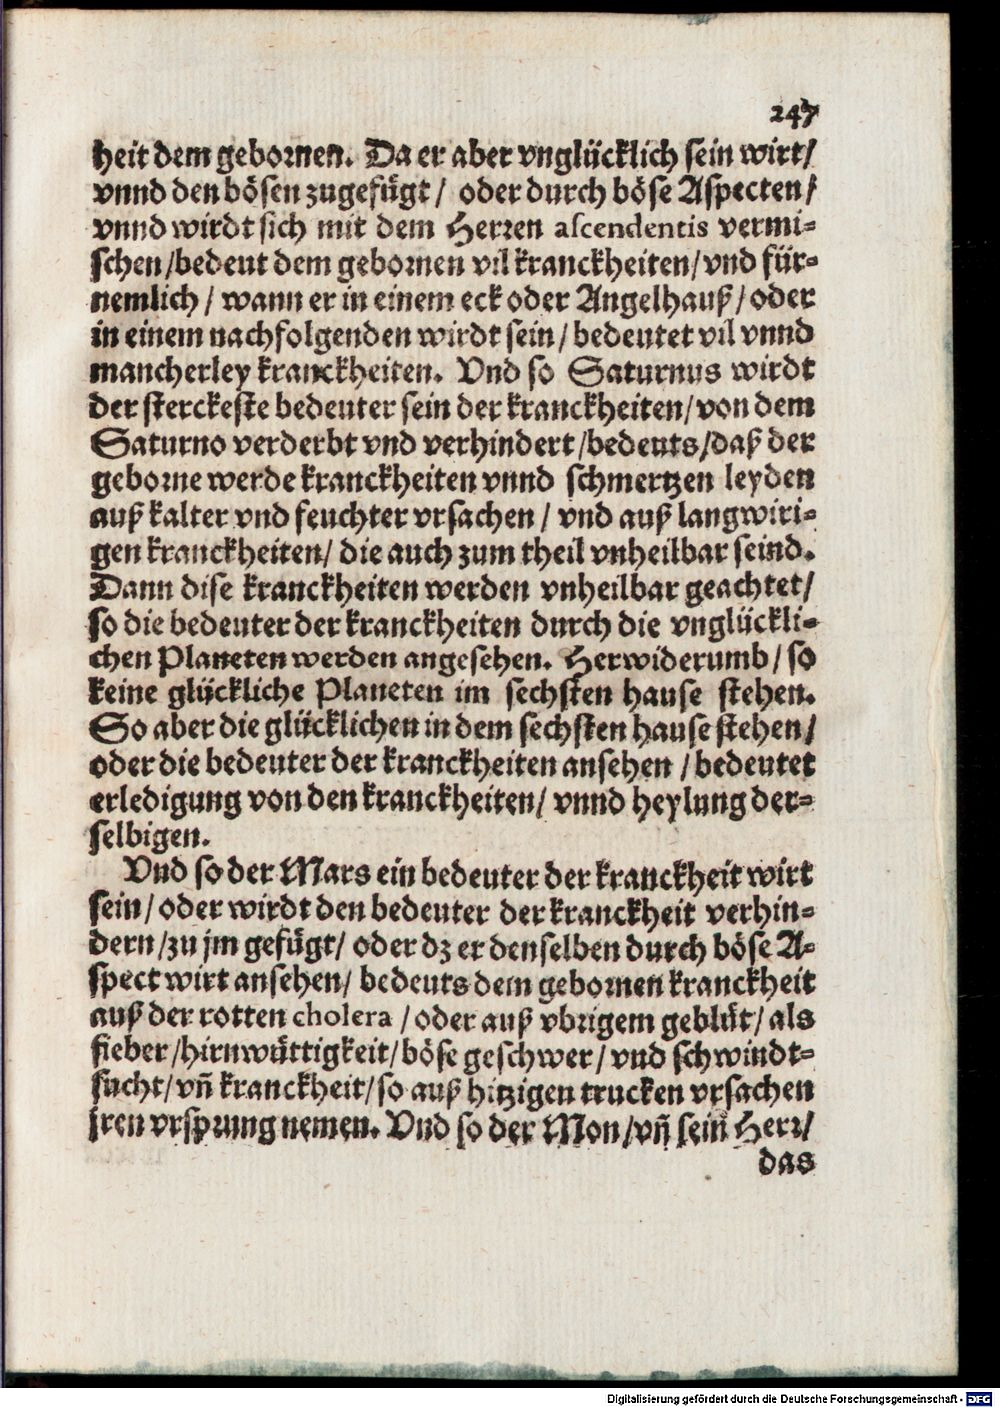 247
heit dem gebornen. Da er aber vnglücklich sein wirt/
vnnd den bösen zugefügt / oder durch böse Aspecten/
vnnd wirdt sich mit dem Herren ascendentis vermi-
schen/bedeut dem gebornen vil kranckheiten/vnd für-
nemlich / wann er in einem eck oder Angelhauß/oder
in einem nachfolgenden wirdt sein/bedeutet vil vnnd
mancherley kranckheiten. Vnd so Saturnus wirdt
der sterckeste bedeuter sein der kranckheiten/von dem
Saturno verderbt vnd verhindert/bedeuts/daß der
geborne werde kranckheiten vnnd schmertzen leyden
auß kalter vnd feuchter vrsachen / vnd auß langwiri-
gen kranckheiten/ die auch zum theil vnheilbar seind.
Dann dise kranckheiten werden vnheilbar geachtet/
so die bedeuter der kranckheiten durch die vnglückli-
chen Planeten werden angesehen. Herwiderumb/so
keine glückliche Planeten im sechsten hause stehen.
So aber die glücklichen in dem sechsten hause stehen/
oder die bedeuter der kranckheiten ansehen /bedeutet
erledigung von den kranckheiten/ vnnd heylung der-
selbigen.
Vnd so der Mars ein bedeuter der kranckheit wirt
sein/oder wirdt den bedeuter der kranckheit verhin-
dern/zu jm gefügt/ oder dz er denselben durch böse A-
spect wirt ansehen/ bedeuts dem gebornen kranckheit
auß der rotten cholera /oder auß vbrigem geblüt/als
fieber/hirnwüttigkeit/böse geschwer/vnd schwindt-
sucht/vñ kranckheit/so auß hitzigen trucken vrsachen
jren vrsprung nemen. Vnd so der Mon/vñ sein Herr/
das
Digitalisierung gefördert durch die Deutsche Forschungsgemeinschaft - DFG